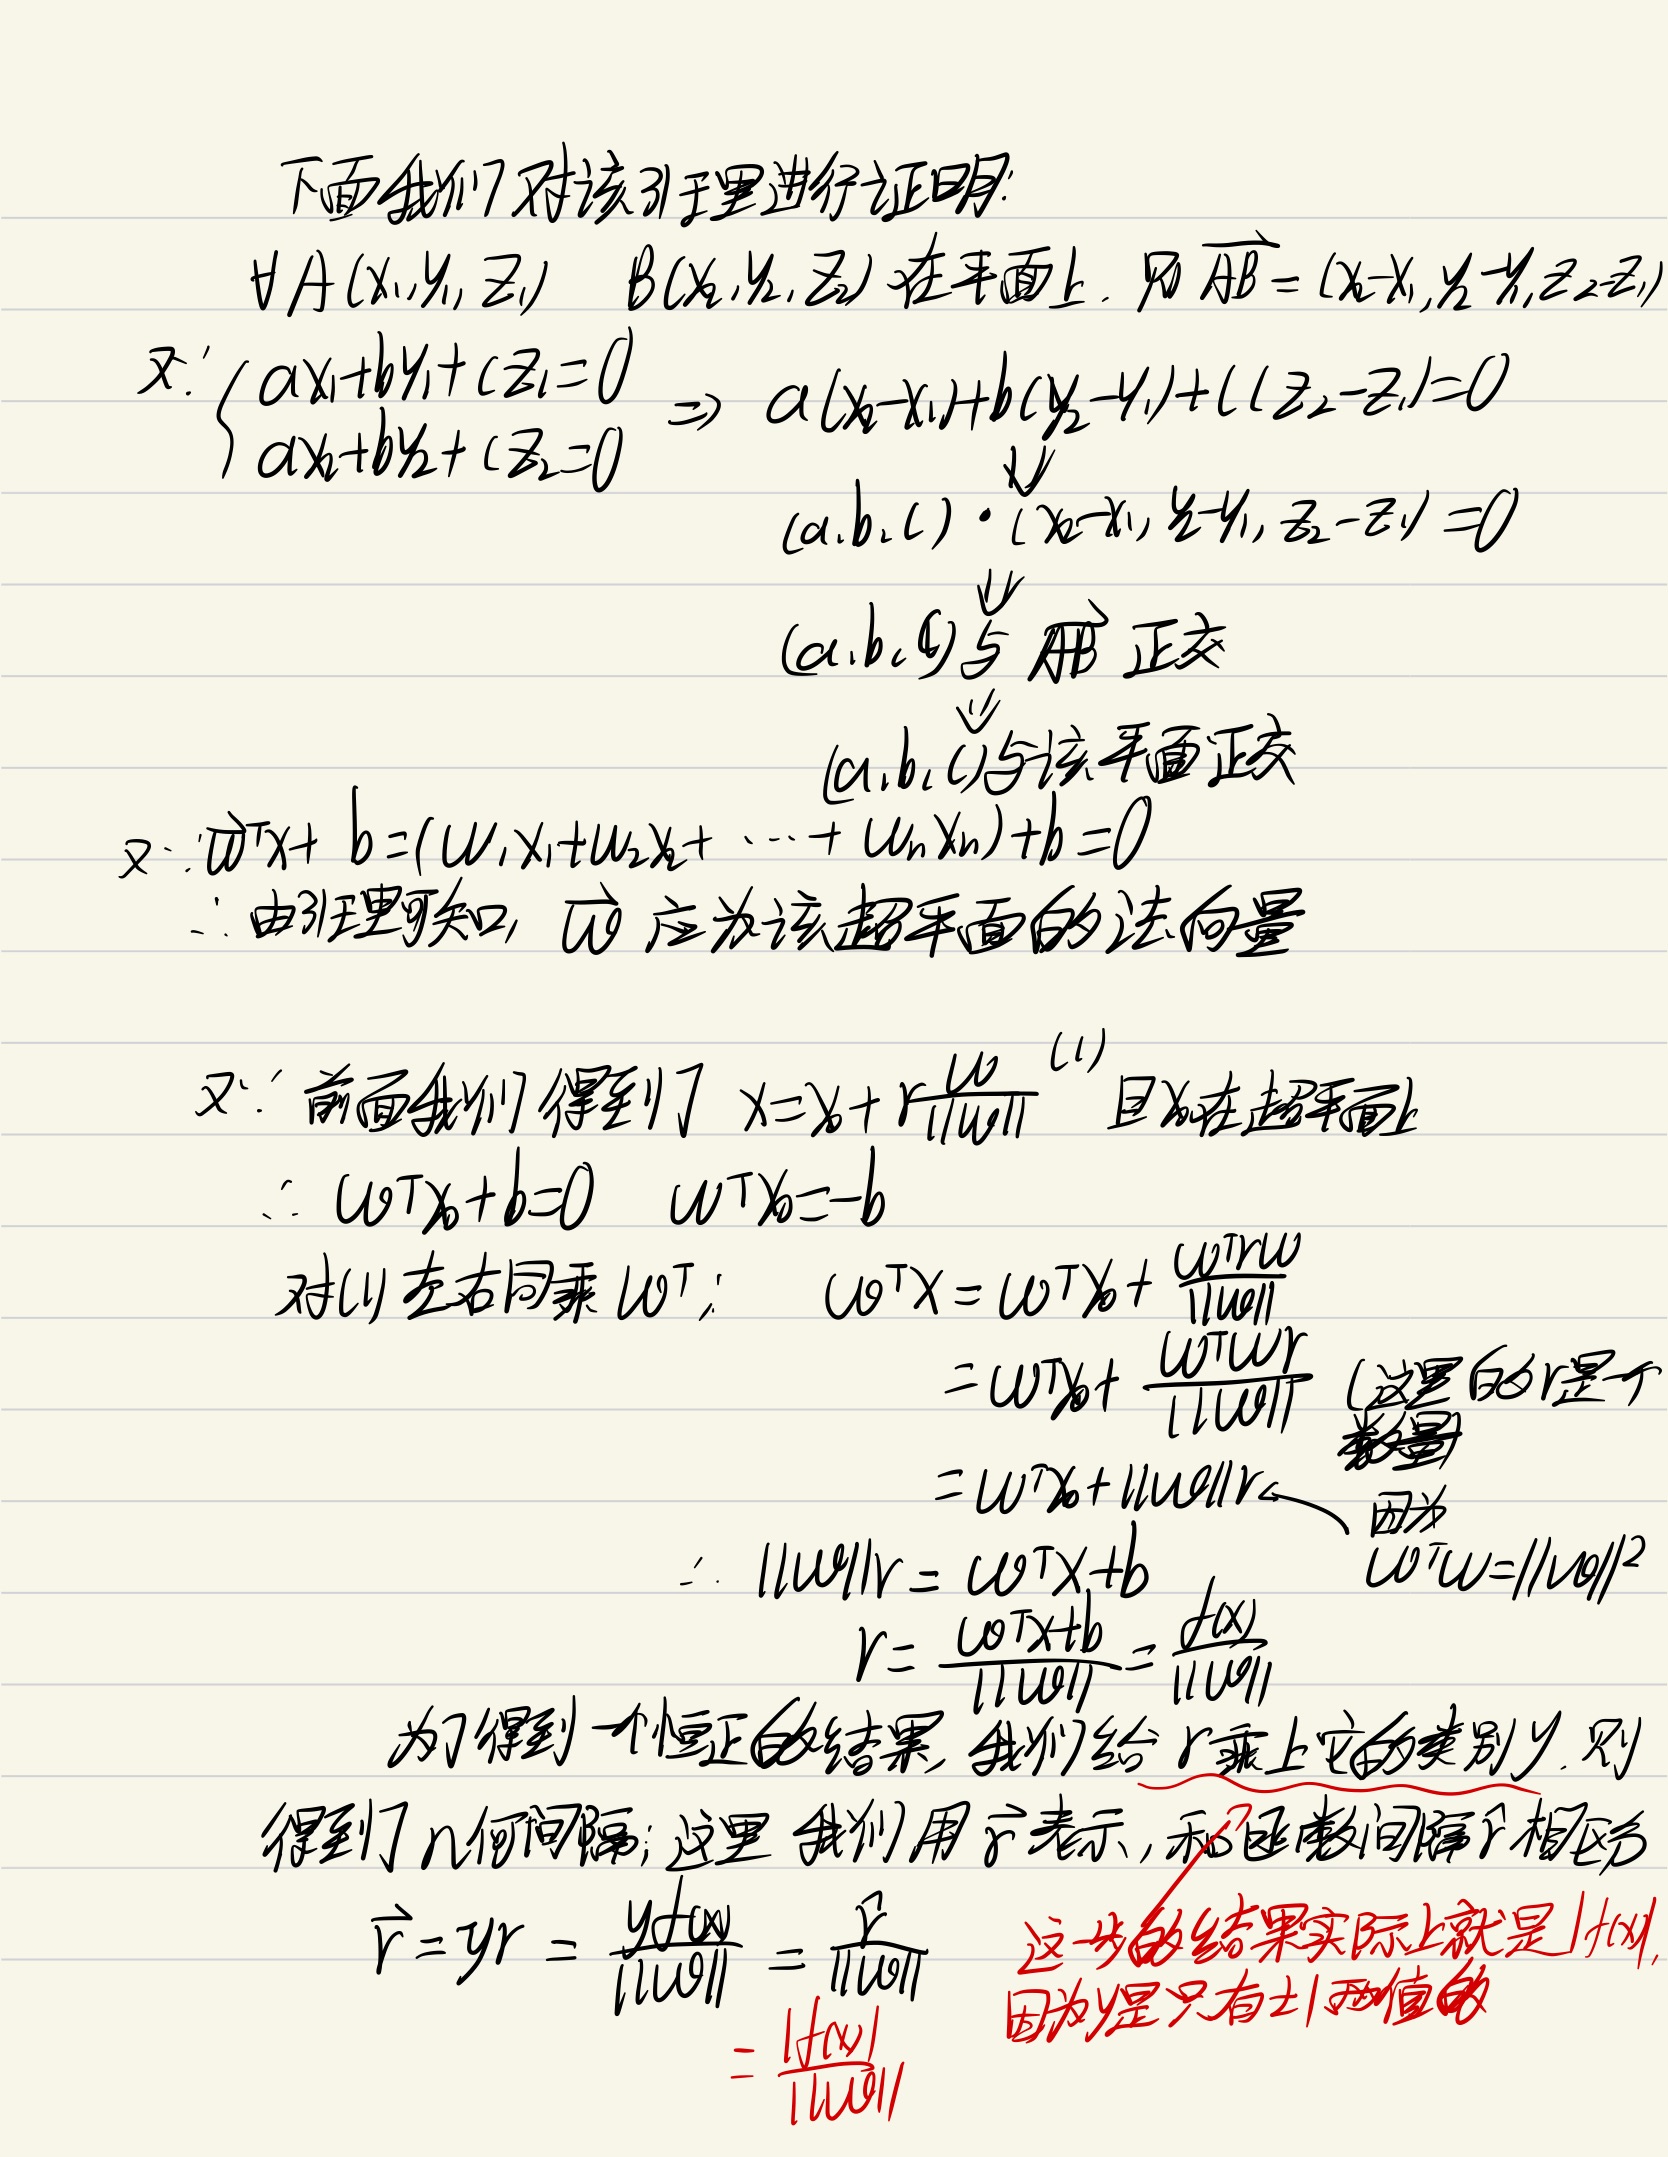 下面我们对该引理进行证明:
∀A(x₁,y₁,z₁) B(x₂,y₂,z₂)在平面上. 则 \overrightarrow{AB}=(x₂-x₁,y₂-y₁,z₂-z₁)
又∵ { ax₁+by₁+cz₁=0
ax₂+by₂+cz₂=0 ⇒ a(x₂-x₁)+b(y₂-y₁)+c(z₂-z₁)=0
⇓
(a,b,c)·(x₂-x₁, y₂-y₁, z₂-z₁)=0
⇓
(a,b,c)与 \overrightarrow{AB} 正交
⇓
(a,b,c)与该平面正交
又∵ \vec{w}ᵀx+b=(w₁x₁+w₂x₂+⋯+wₙxₙ)+b=0
∴由引理可知, \vec{w} 应为该超平面的法向量
又∵ 前面我们得到了 x=x₀+r\frac{w}{||w||} (1) 且x₀在超平面上
∴ wᵀx₀+b=0 wᵀx₀=-b
对(1)左右同乘wᵀ: wᵀx=wᵀx₀+\frac{wᵀrw}{||w||}
=wᵀx₀+\frac{wᵀwr}{||w||} (这里的r是一个
数量)
=wᵀx₀+||w||r ← 因为
wᵀw=||w||²
∴ ||w||r=wᵀx+b
r=\frac{wᵀx+b}{||w||}=\frac{f(x)}{||w||}
为了得到一个恒正的结果, 我们给 r乘上它的类别y. 则
得到了几何间隔; 这里我们用\vec{r}表示, 和函数间隔\hat{r}相区分
\vec{r}=yr=\frac{yf(x)}{||w||}=\frac{\hat{r}}{||w||}
=\frac{|f(x)|}{||w||}
这一步的结果实际上就是|f(x)|,
因为y是只有±1两值的